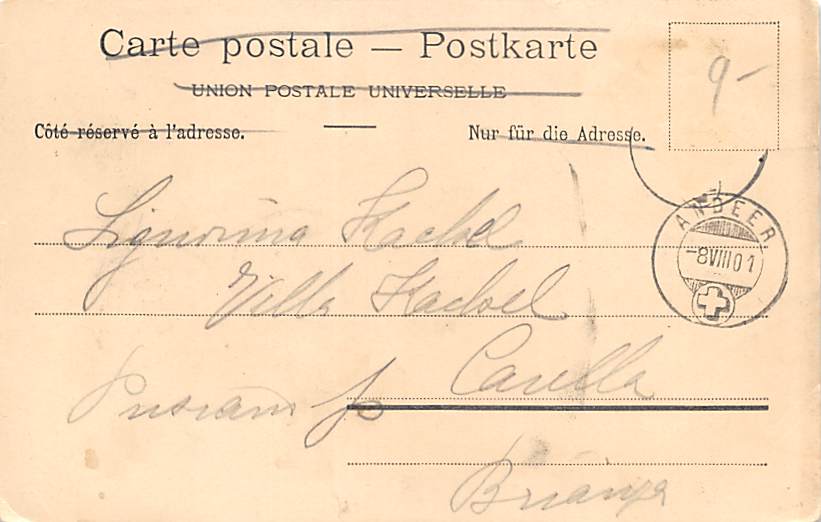 Carte postale — Postkarte
UNION POSTALE UNIVERSELLE
Côté réservé à l'adresse.
Nur für die Adresse.
9-
ANDEER
-8VIII01
Signorina Hackel
Villa Hackel
Carella
per
Brianza